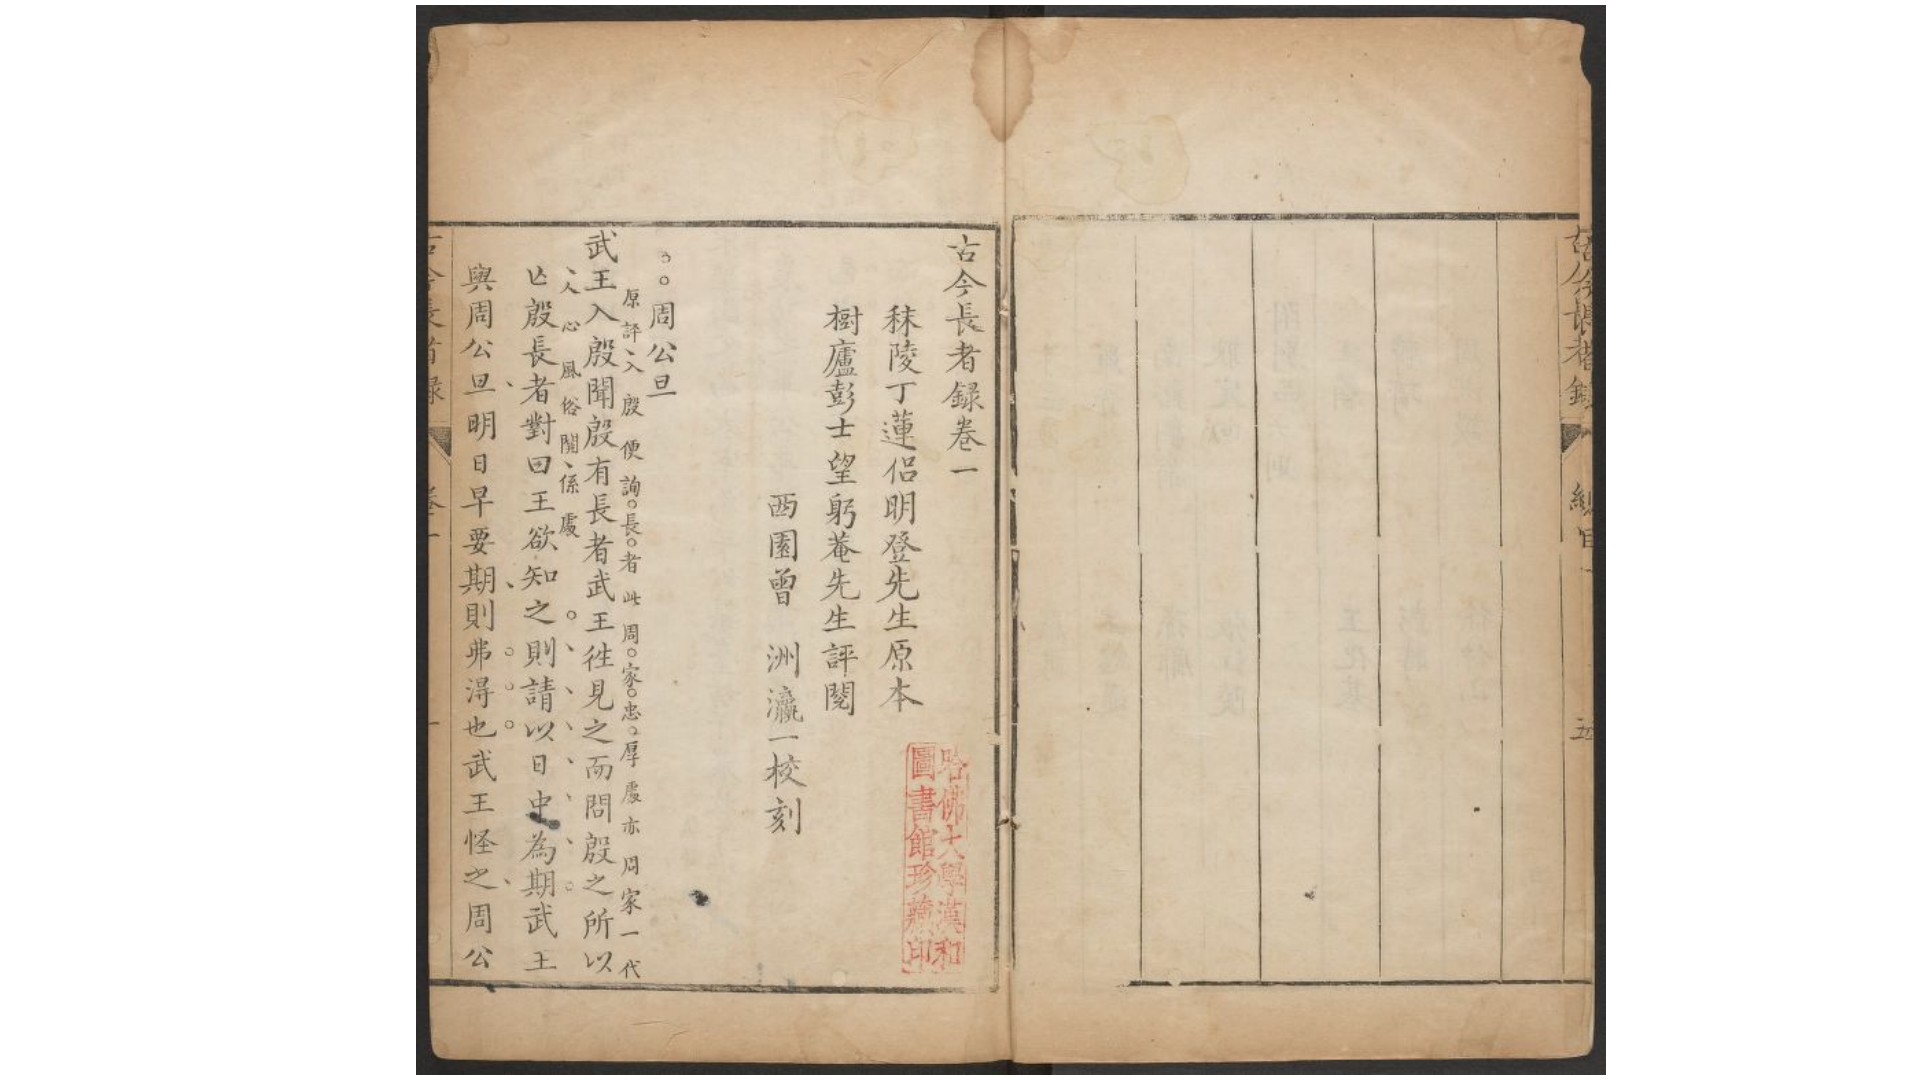 古今長者錄
總目
五
古今長者録卷一
秣陵丁蓮侣明登先生原本
樹廬彭士望躬菴先生評閱
西園曾 洲瀛一校刻
哈佛大學漢和
圖書館珍藏印
周公旦
原評入殷便詢長者此周家忠厚處亦周家一代
武王入殷聞殷有長者武王徃見之而問殷之所以
人心風俗關係處
亾殷長者對曰王欲知之則請以日中為期武王
與周公旦明日早要期則弗淂也武王怪之周公
古今長者録
卷一
一